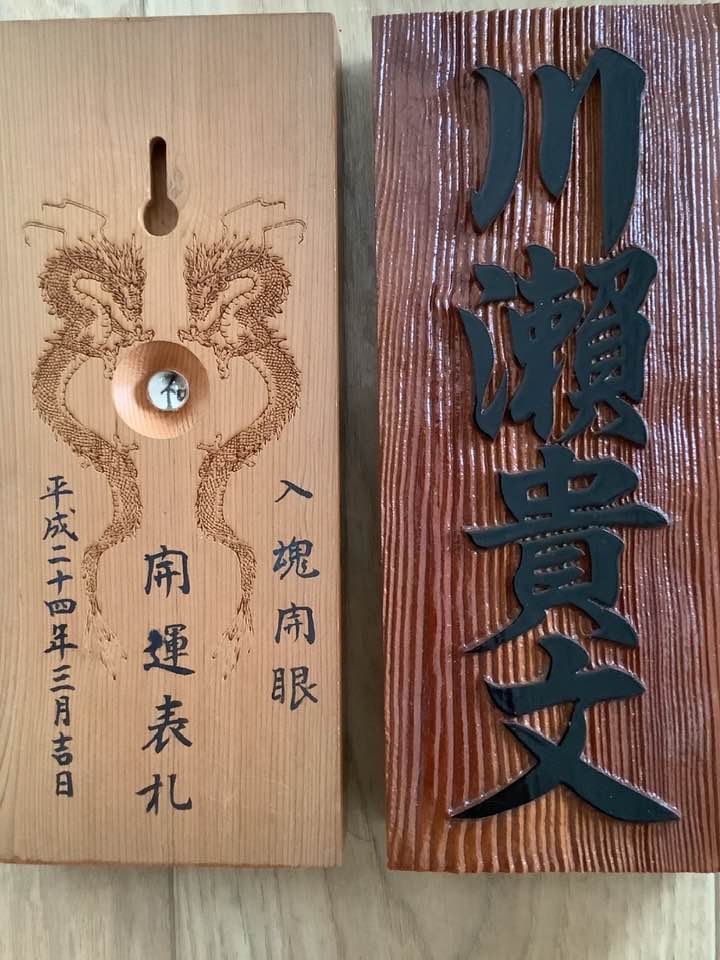 川瀬貴文
入魂開眼
開運表札
平成二十四年三月吉日